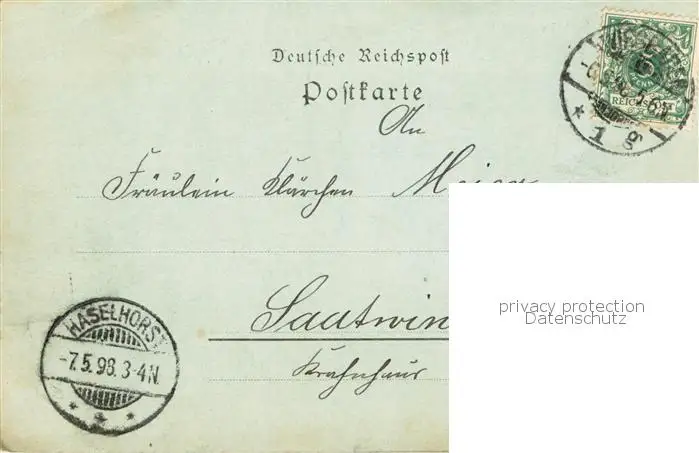 Deutsche Reichspost
Postkarte
An
Fräulein Klärchen Meier
Saatwin
Krahnhaus
HASELHORST
-7.5.98.3-4N.
REICHSPOST
5-6N
* 1 g
privacy protection
Datenschutz